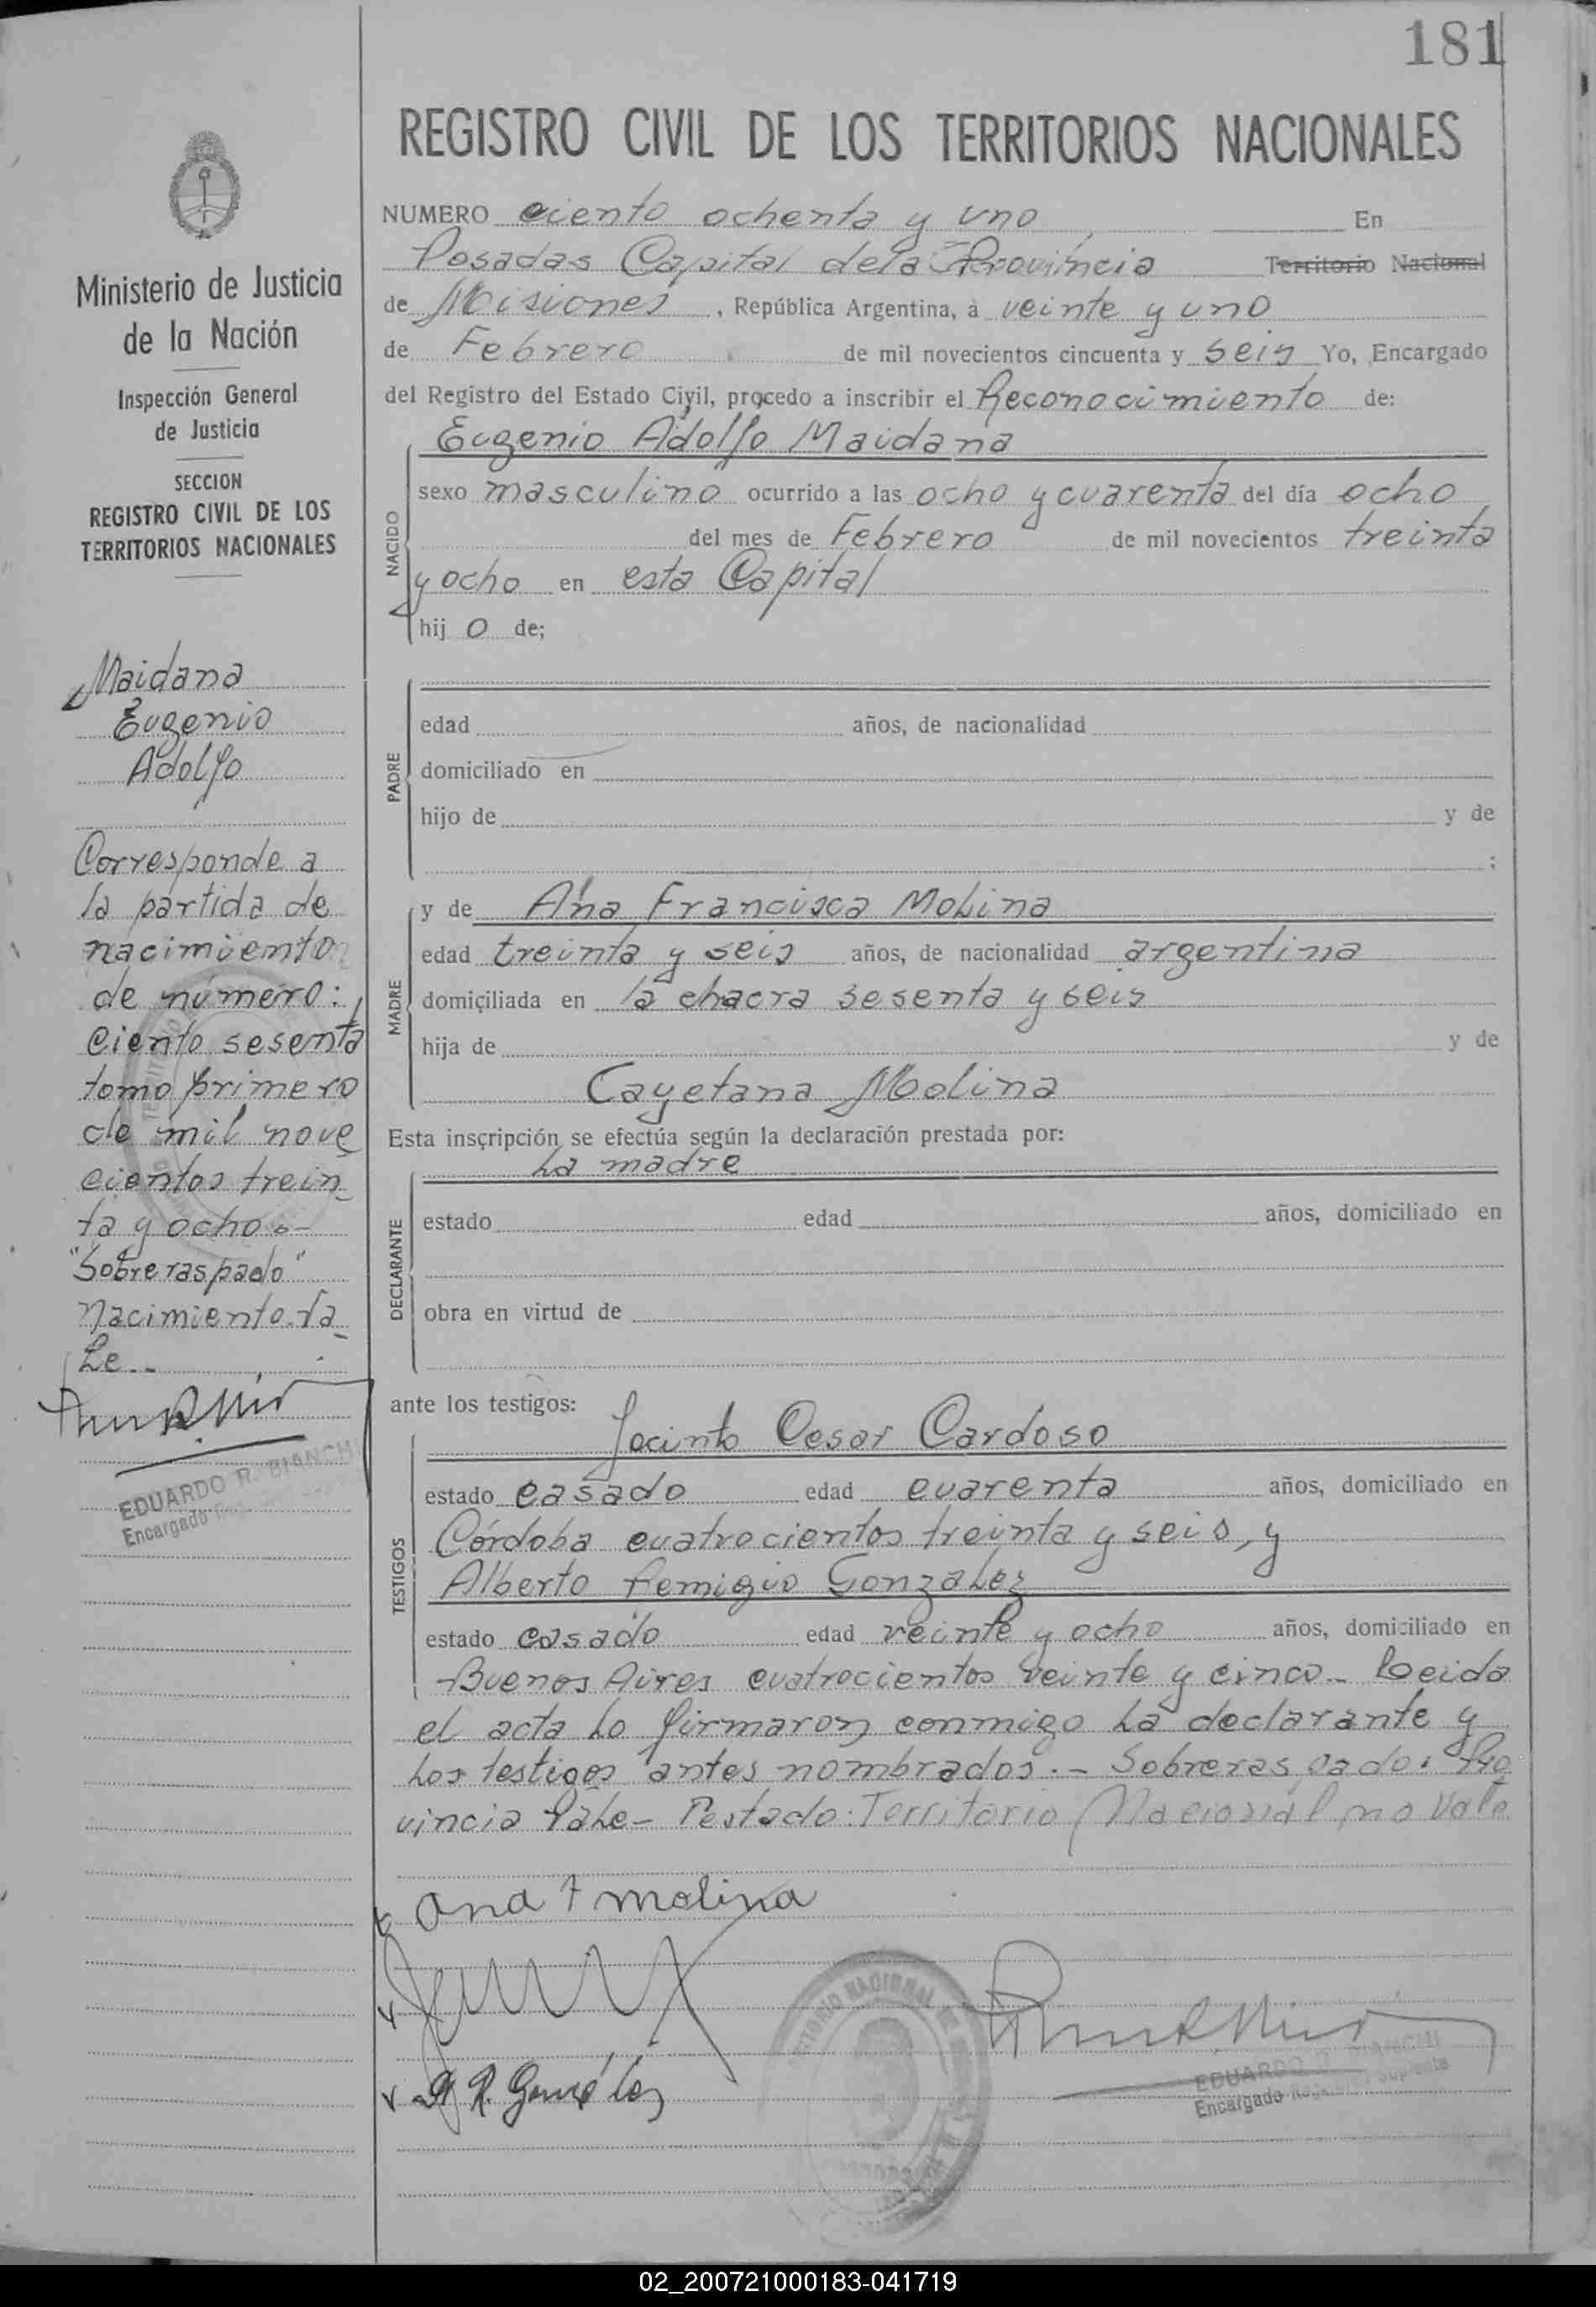 181
REGISTRO CIVIL DE LOS TERRITORIOS NACIONALES
NUMERO ciento ochenta y uno En
Posadas Capital de la Provincia Territorio Nacional
de Misiones, República Argentina, a veinte y uno
de Febrero de mil novecientos cincuenta y seis Yo, Encargado
del Registro del Estado Civil, procedo a inscribir el Reconocimiento de:
Eugenio Adolfo Maidana
NACIDO
sexo masculino ocurrido a las ocho y cuarenta del día ocho
del mes de Febrero de mil novecientos treinta
y ocho en esta Capital
hij o de;
PADRE
edad años, de nacionalidad
domiciliado en
hijo de y de
;
MADRE
y de Ana Francisca Molina
edad treinta y seis años, de nacionalidad argentina
domiciliada en la chacra sesenta y seis
hija de y de
Cayetana Molina
Esta inscripción se efectúa según la declaración prestada por:
La madre
DECLARANTE
estado edad años, domiciliado en
obra en virtud de
ante los testigos:
TESTIGOS
Jacinto Cesar Cardoso
estado casado edad cuarenta años, domiciliado en
Córdoba cuatrocientos treinta y seis, y
Alberto Remigio Gonzalez
estado casado edad veinte y ocho años, domiciliado en
Buenos Aires cuatrocientos veinte y cinco.- Leida
el acta lo firmaron conmigo la declarante y
los testigos antes nombrados.- Sobreraspado: Pro
vincia Vale- Testado: Territorio Nacional no Vale
Ana F Molina
A R. González
EDUARDO R. BIANCHI
Encargado Suplente
Ministerio de Justicia
de la Nación
Inspección General
de Justicia
SECCION
REGISTRO CIVIL DE LOS
TERRITORIOS NACIONALES
Maidana
Eugenio
Adolfo
Corresponde a
la partida de
nacimiento
de número:
ciento sesenta
tomo primero
de mil nove
cientos trein
ta y ocho.-
"Sobreraspado"
Nacimiento. Va
Le.-
EDUARDO R. BIANCHI
Encargado
02_200721000183-041719